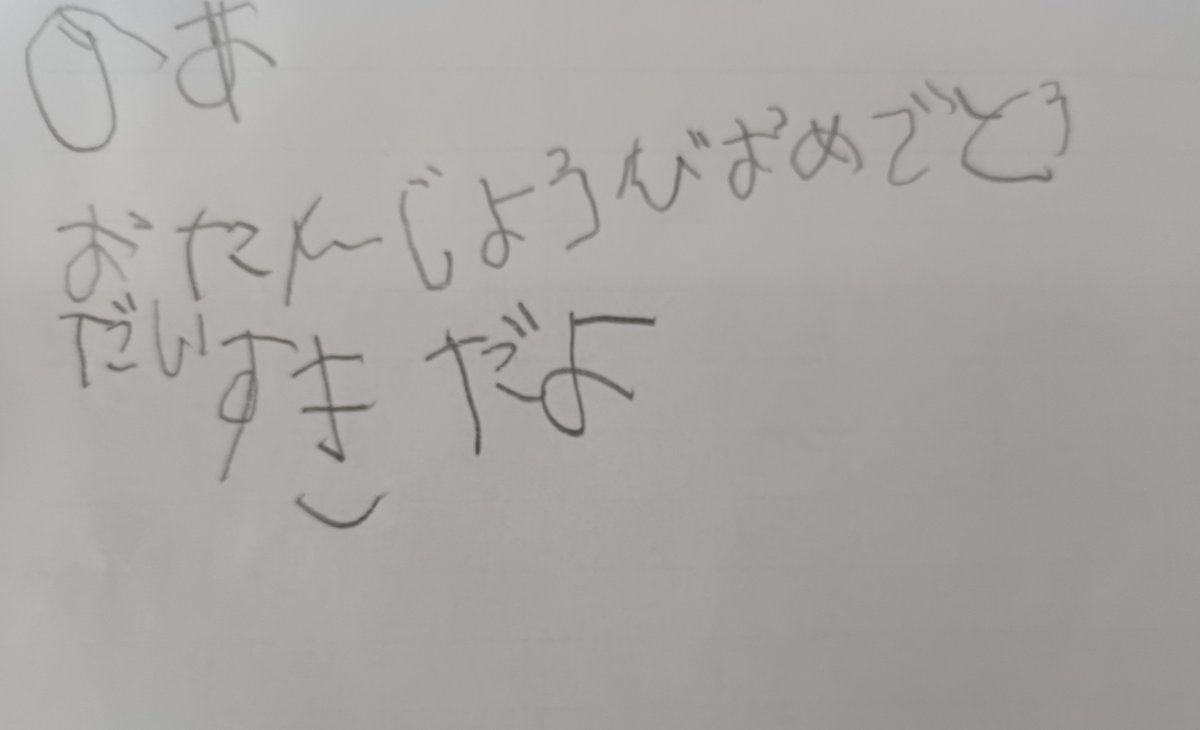 のあ
おたんじようびおめでとう
だいすきだよ